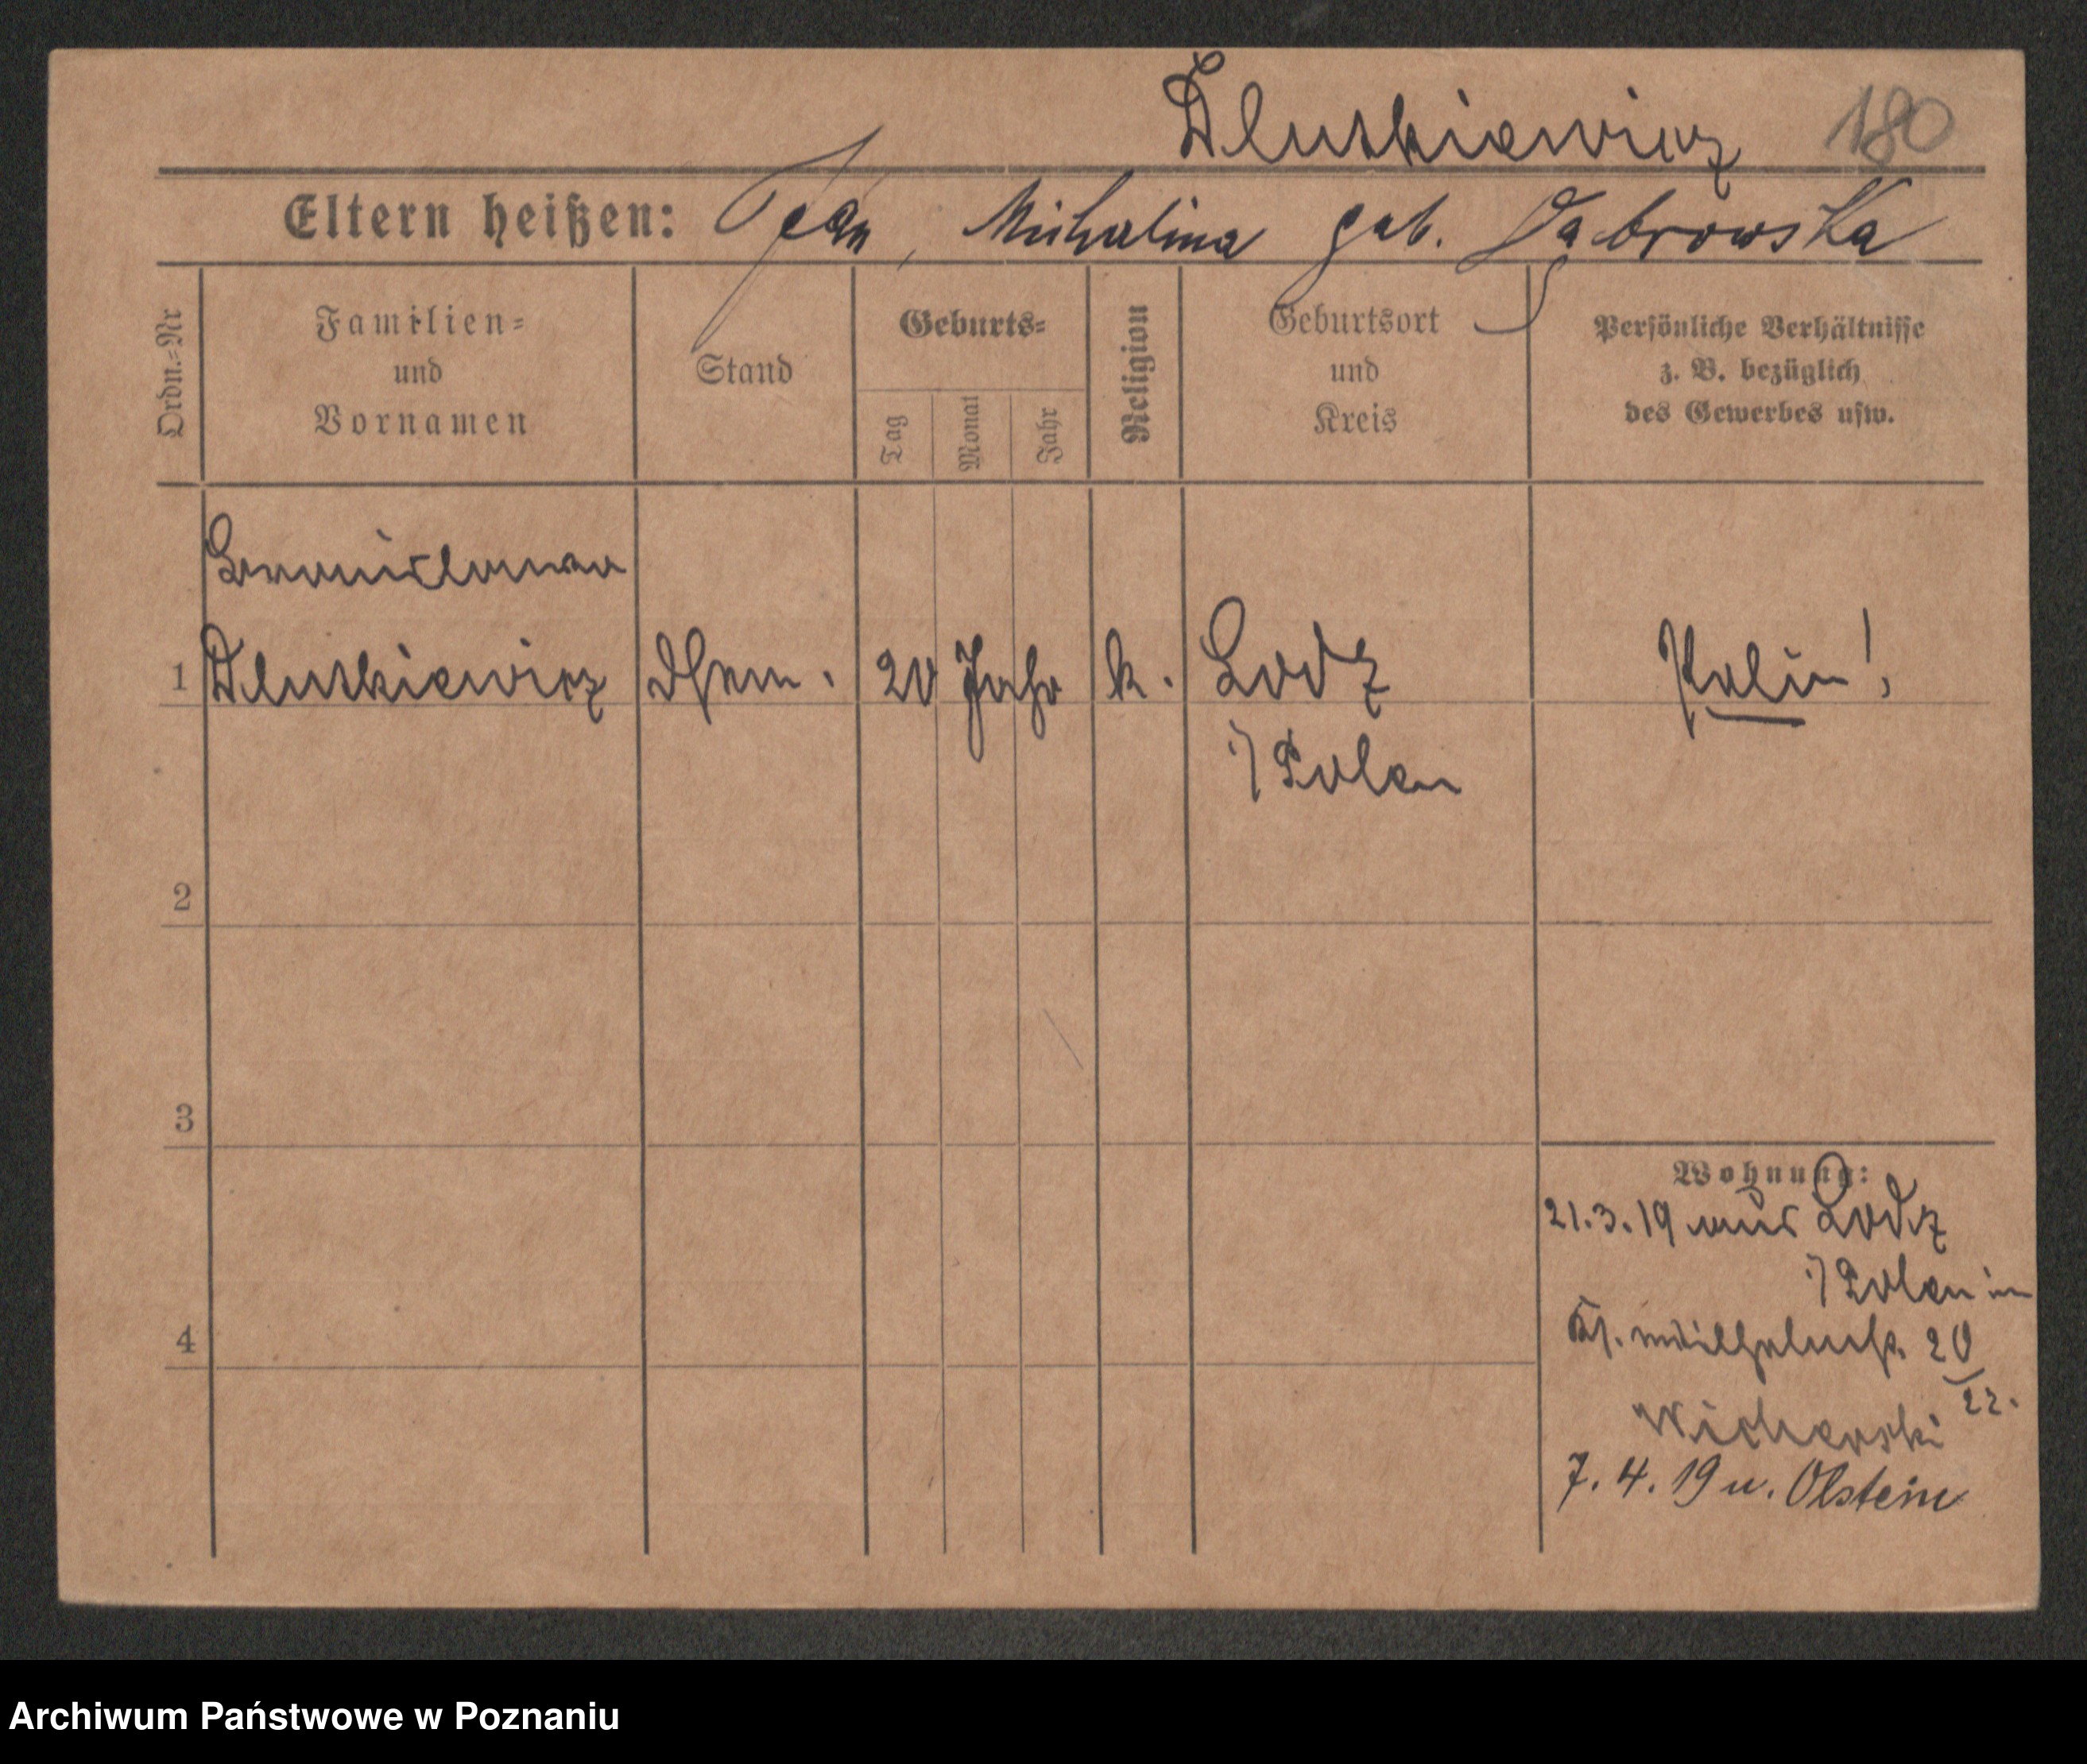 Dluskiewicz 180
Eltern heißen: Jean, Michalina geb. Dąbrowska
Ordn.-Nr
Familien-
und
Vornamen
Stand
Geburts-
Tag
Monat
Jahr
Religion
Geburtsort
und
Kreis
Persönliche Verhältnisse
z. B. bezüglich
des Gewerbes usw.
1 Dluskiewicz 20 Jahr k. Lodz Polin!
i/Polen
2
3
Wohnung:
21.3.19 aus Lodz
i/Polen in
4 20
/22.
Wicherski
7. 4. 19 u. Olstein
Archiwum Państwowe w Poznaniu